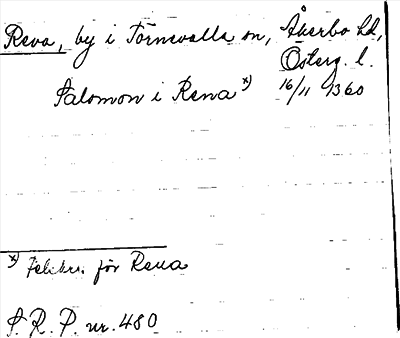 Reva, by i Törnevalla sn, Åkerbo hd,
Österg. l.
Salomon i Rena x) 16/11 1360
x) Felskr. för Reva
S. R. P. nr. 480